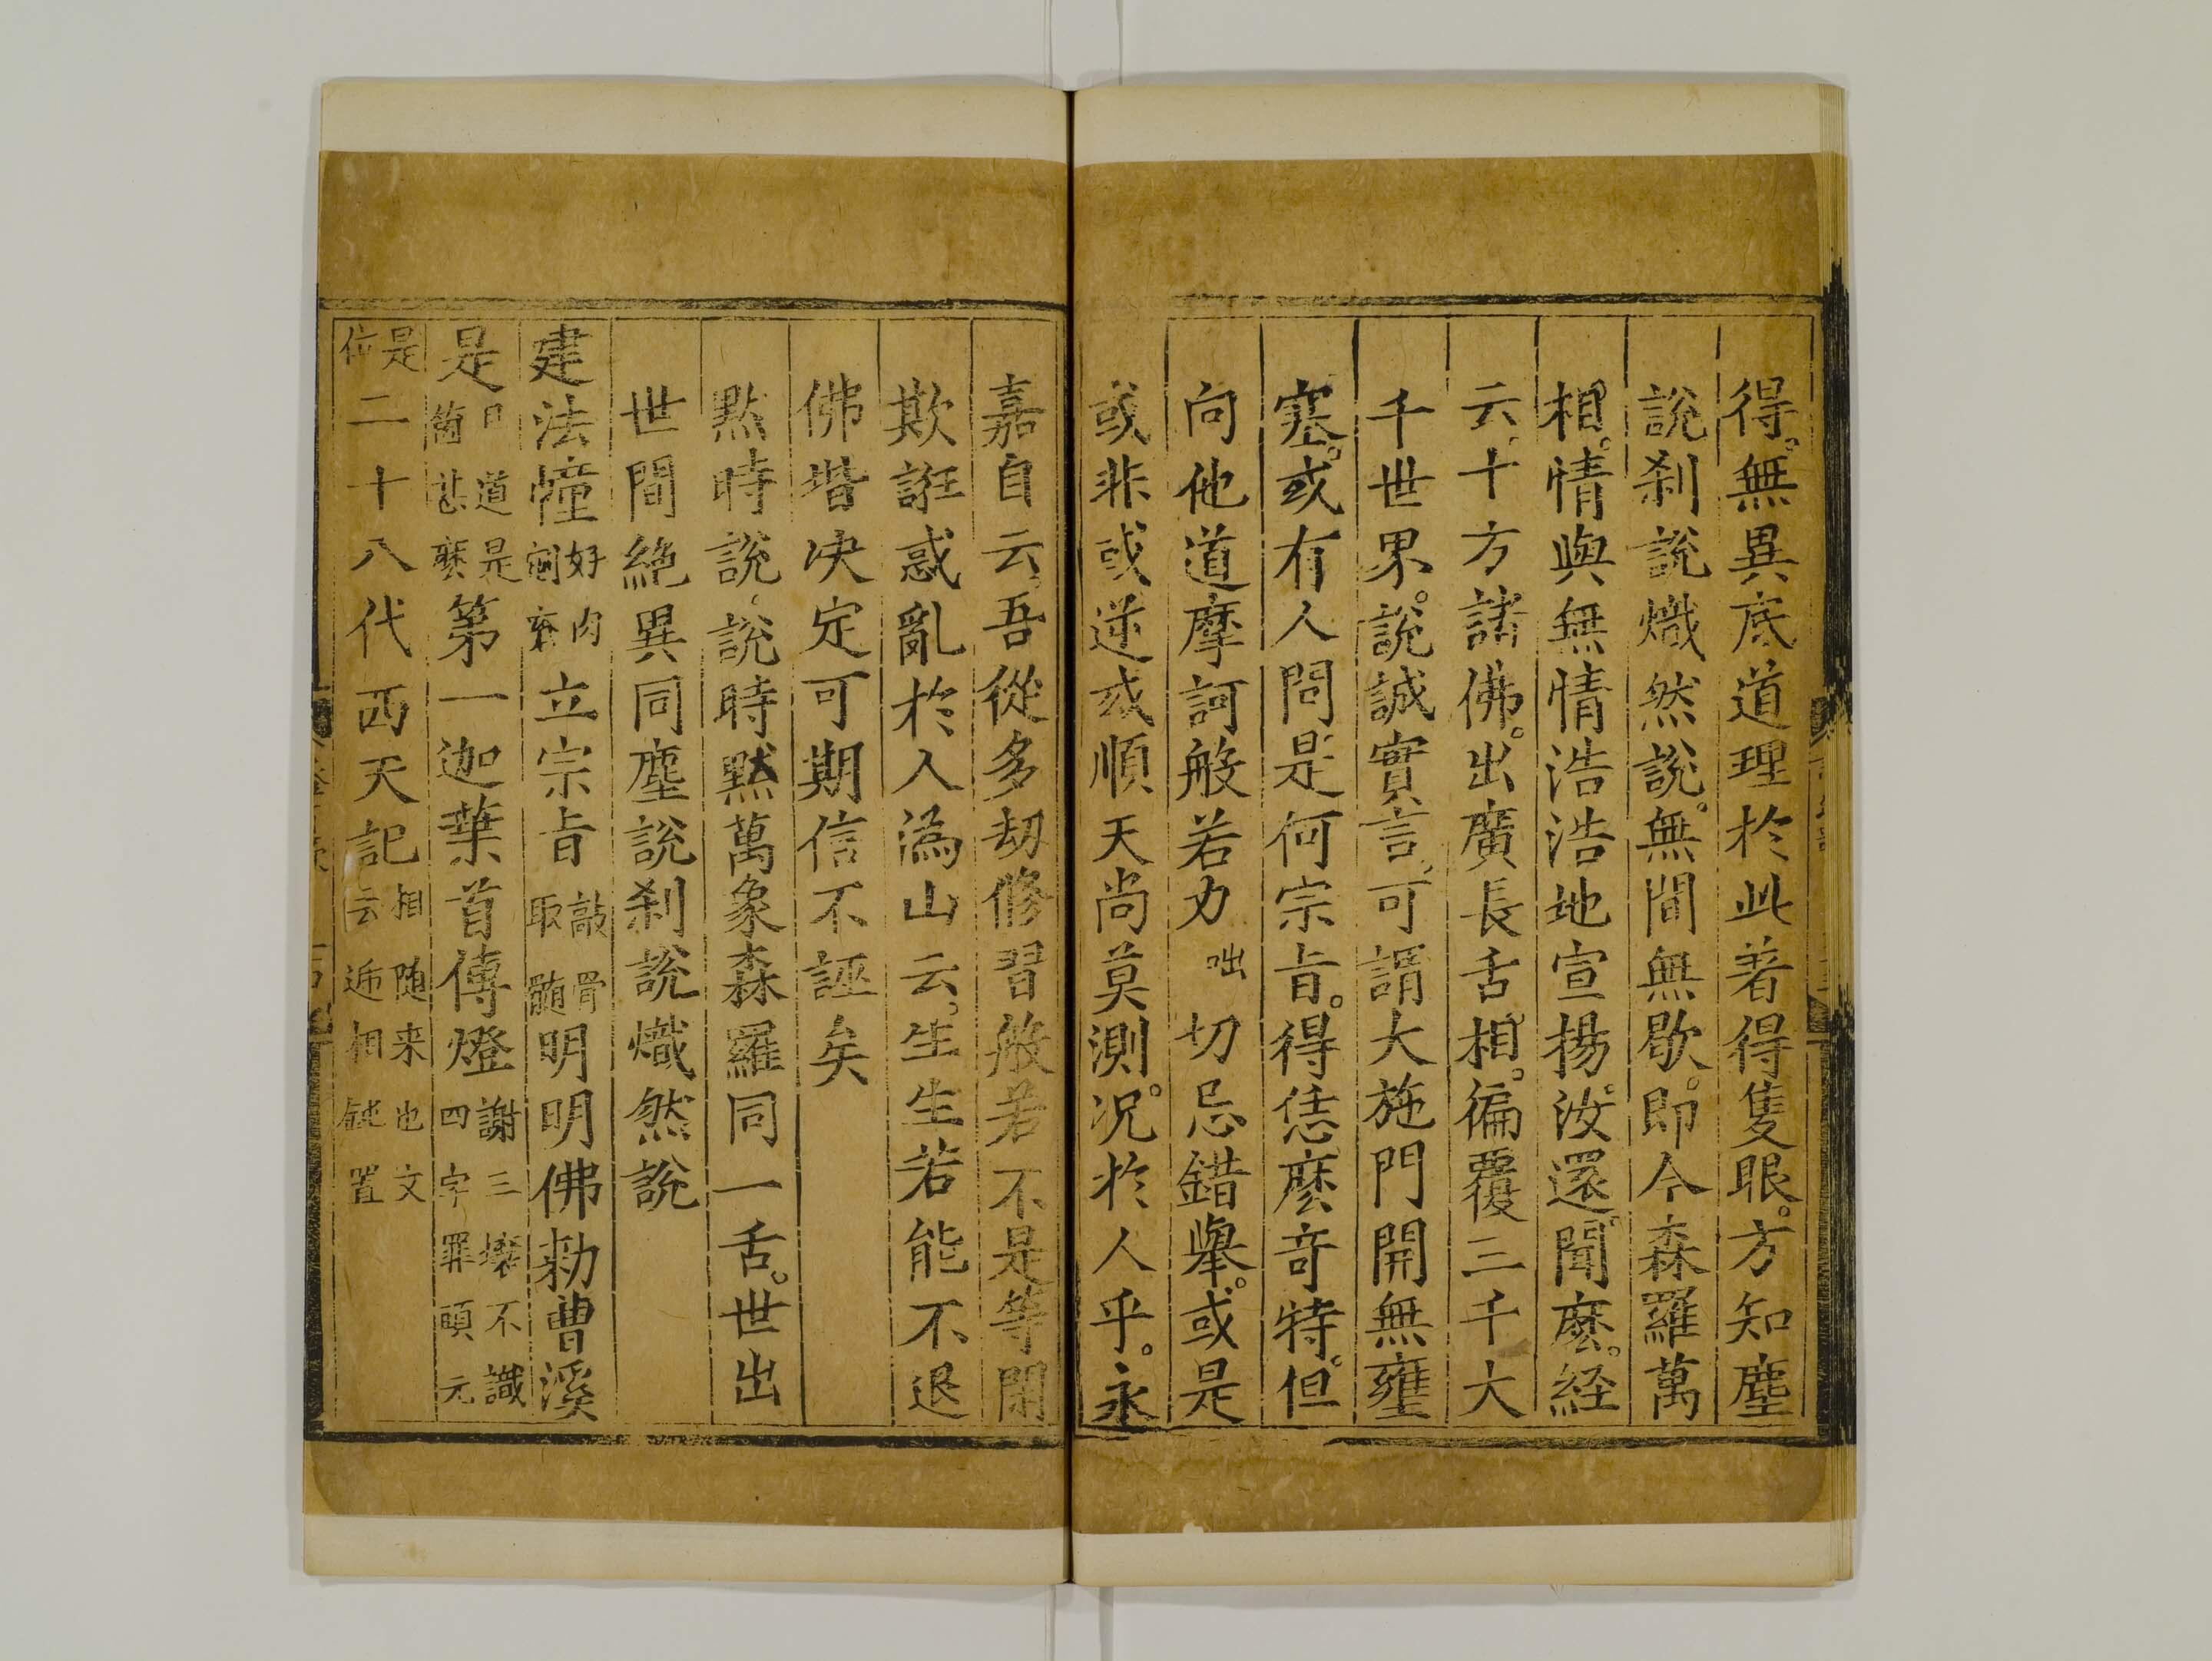 得。無異底道理於此着得隻眼。方知塵
說刹說熾然說。無間無歇。即今森羅萬
相。情與無情浩浩地宣揚。汝還聞麽。経
云。十方諸佛。出廣長舌相。徧覆三千大
千世界。說誠實言。可謂大施門開無壅
塞。或有人問是何宗旨。得恁麽竒特。但
向他道摩訶般若力咄切忌錯擧。或是
或非或逆或順天尚莫測。况於人乎。永
嘉自云。吾從多刼修習般若不是等閑
欺誑惑亂於人潙山云。生生若能不退
佛堦决定可期信不誣矣
黙時說。說時黙萬象森羅同一舌。世出
世間絶異同塵說刹說熾然說
建法幢好肉剜瘡立宗旨敲骨取髓明明佛勑曹溪
是且道是箇甚麽第一迦葉首傳燈謝三娘不識四字罪頭元
是位二十八代西天記相随来也文云逓相鈍置